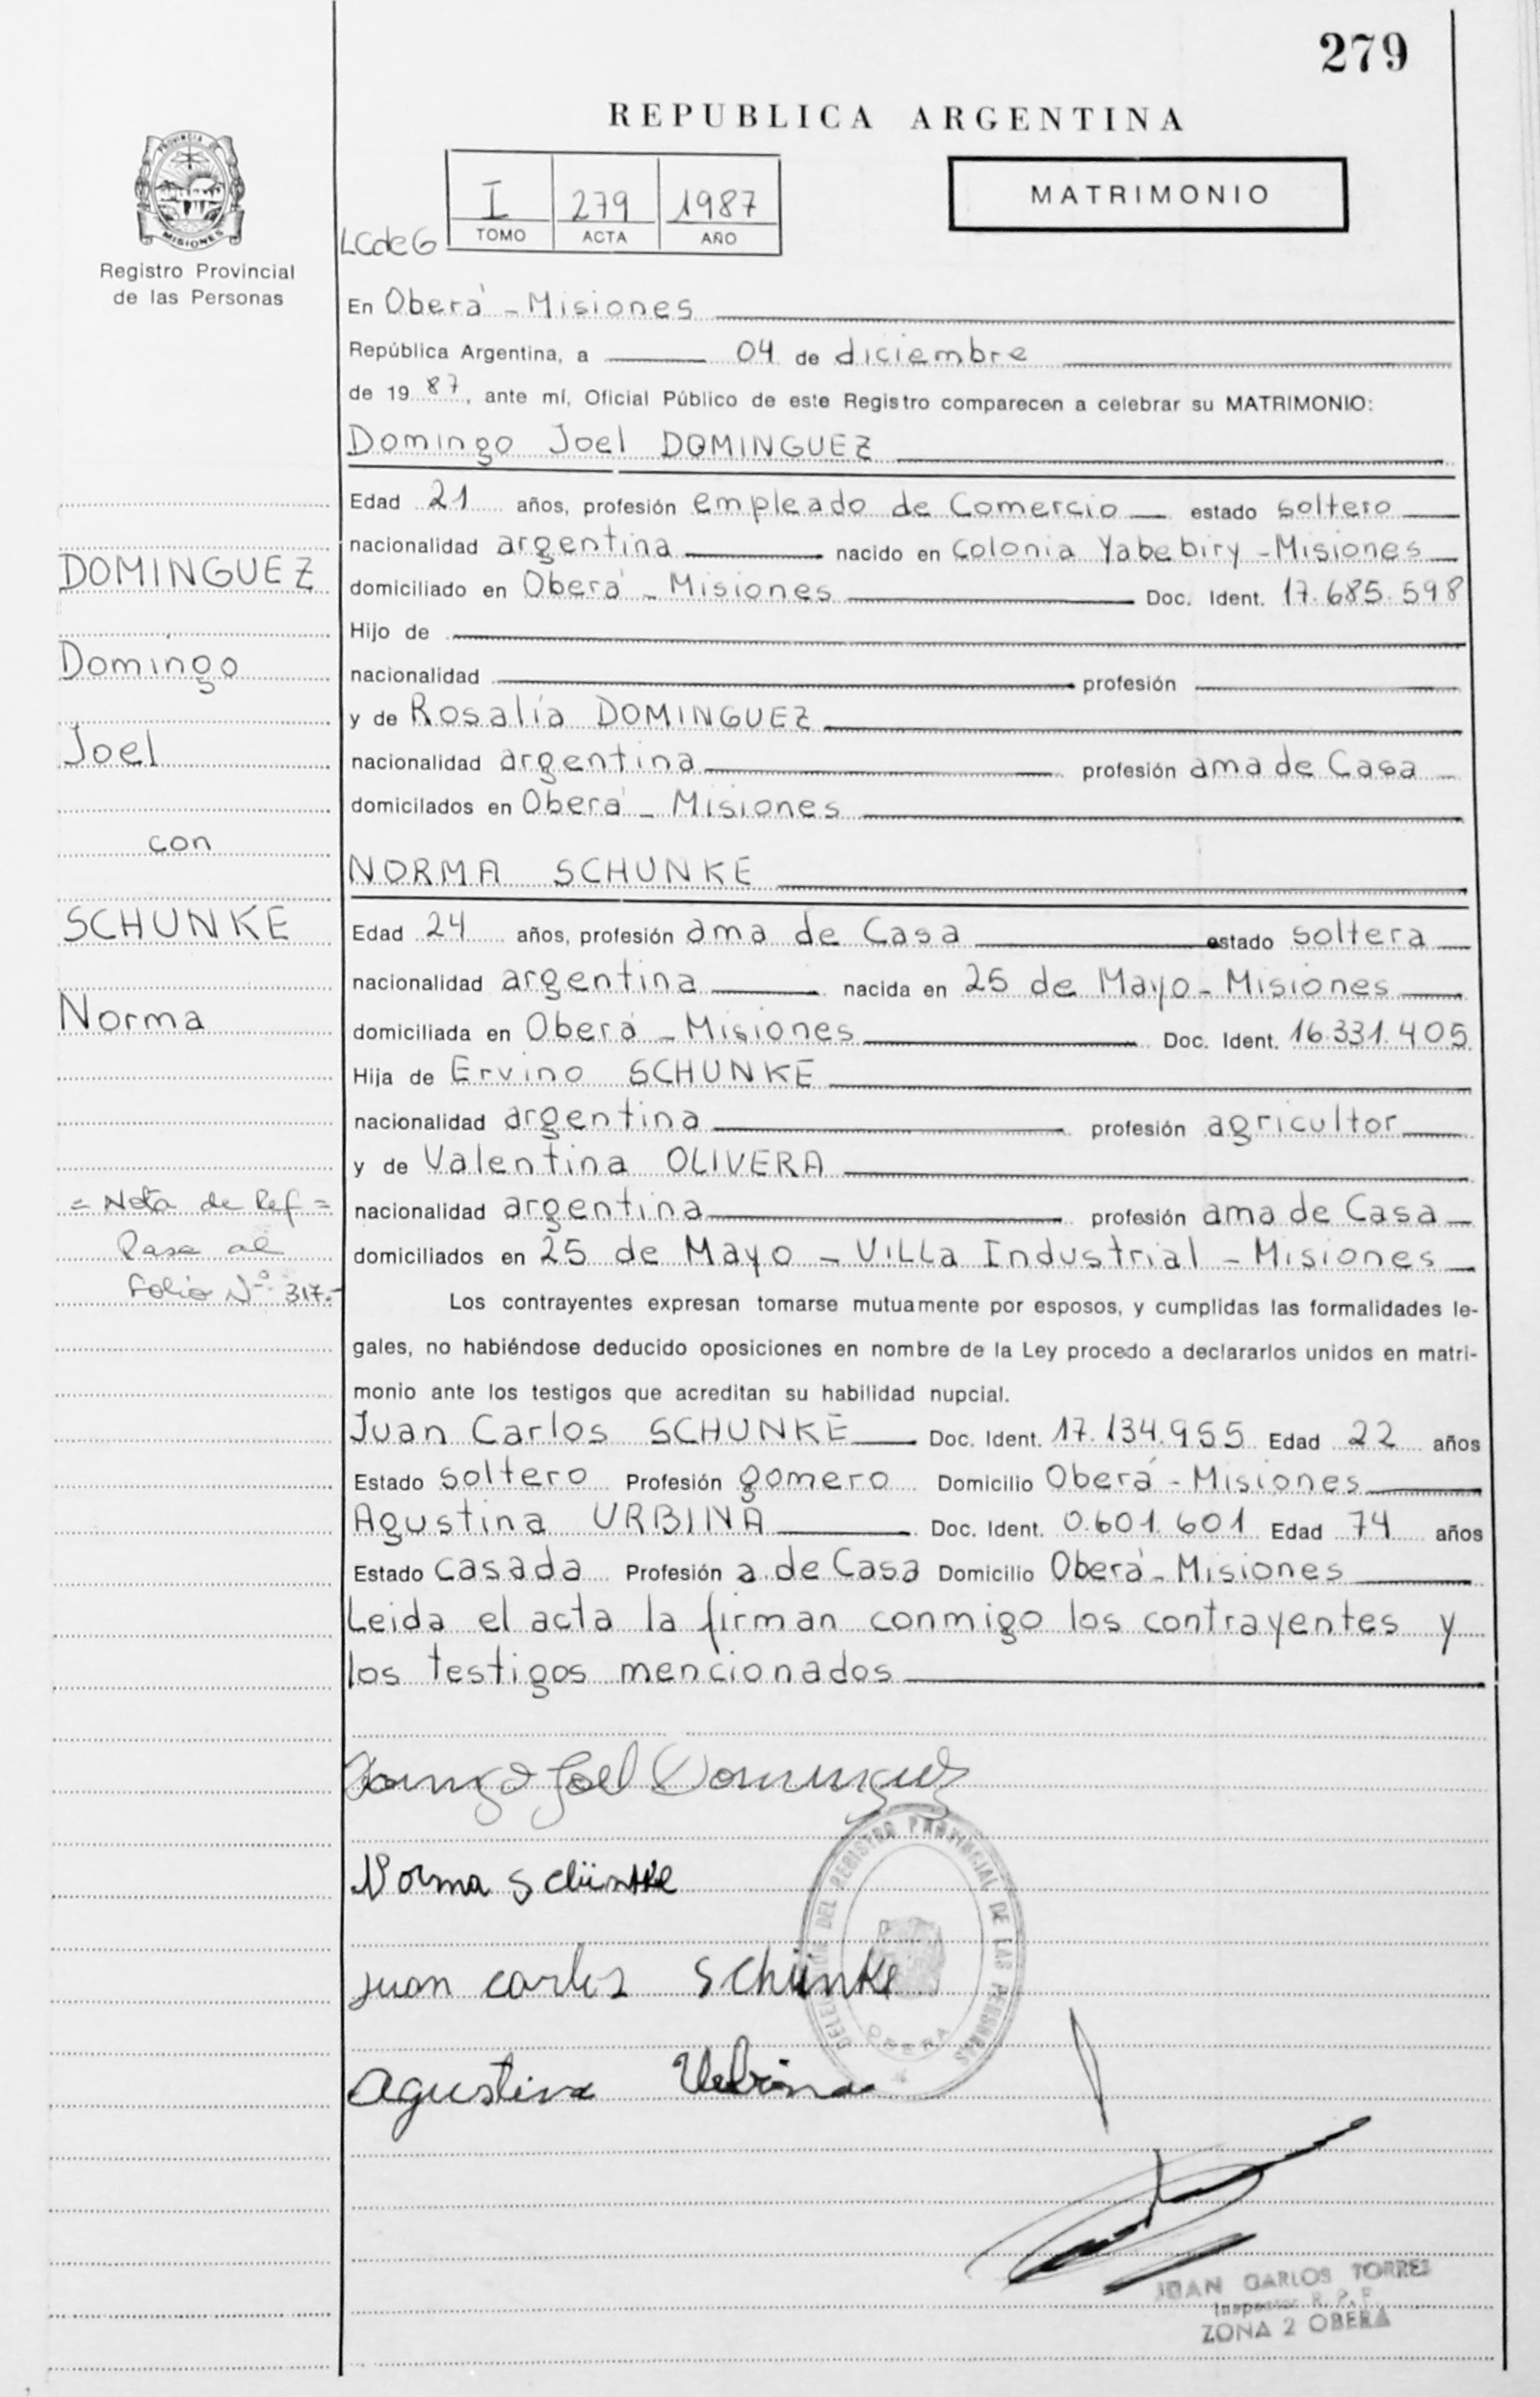 279
REPUBLICA ARGENTINA
PROVINCIA DE
MISIONES
Registro Provincial
de las Personas
I 279 1987
TOMO ACTA AÑO
MATRIMONIO
LCdeG
En Oberá - Misiones
República Argentina, a 04 de diciembre
de 19 87, ante mí, Oficial Público de este Registro comparecen a celebrar su MATRIMONIO:
Domingo Joel DOMINGUEZ
Edad 21 años, profesión empleado de Comercio estado soltero
nacionalidad argentina nacido en Colonia Yabebiry - Misiones
domiciliado en Oberá - Misiones Doc. Ident. 17.685.598
Hijo de
nacionalidad profesión
y de Rosalía DOMINGUEZ
nacionalidad argentina profesión ama de Casa
domicilados en Oberá - Misiones
NORMA SCHUNKE
Edad 24 años, profesión ama de Casa estado soltera
nacionalidad argentina nacida en 25 de Mayo - Misiones
domiciliada en Oberá - Misiones Doc. Ident. 16.331.405
Hija de Ervino SCHUNKE
nacionalidad argentina profesión agricultor
y de Valentina OLIVERA
nacionalidad argentina profesión ama de Casa
domiciliados en 25 de Mayo - Villa Industrial - Misiones
Los contrayentes expresan tomarse mutuamente por esposos, y cumplidas las formalidades le-
gales, no habiéndose deducido oposiciones en nombre de la Ley procedo a declararlos unidos en matri-
monio ante los testigos que acreditan su habilidad nupcial.
Juan Carlos SCHUNKE Doc. Ident. 17.134.955 Edad 22 años
Estado soltero Profesión gomero Domicilio Oberá - Misiones
Agustina URBINA Doc. Ident. 0.601.601 Edad 74 años
Estado Casada Profesión a. de Casa Domicilio Oberá - Misiones
Leida el acta la firman conmigo los contrayentes y
los testigos mencionados
DOMINGUEZ
Domingo
Joel
con
SCHUNKE
Norma
= Nota de Ref =
Pasa al
folio Nº 317.-
Domingo Joel Dominguez
Norma Schünke
Juan Carlos Schünke
Agustina Urbina
DELEGACIÓN DEL REGISTRO PROVINCIAL DE LAS PERSONAS
OBERA
JUAN CARLOS TORRES
Inspector R. P. F.
ZONA 2 OBERÁ